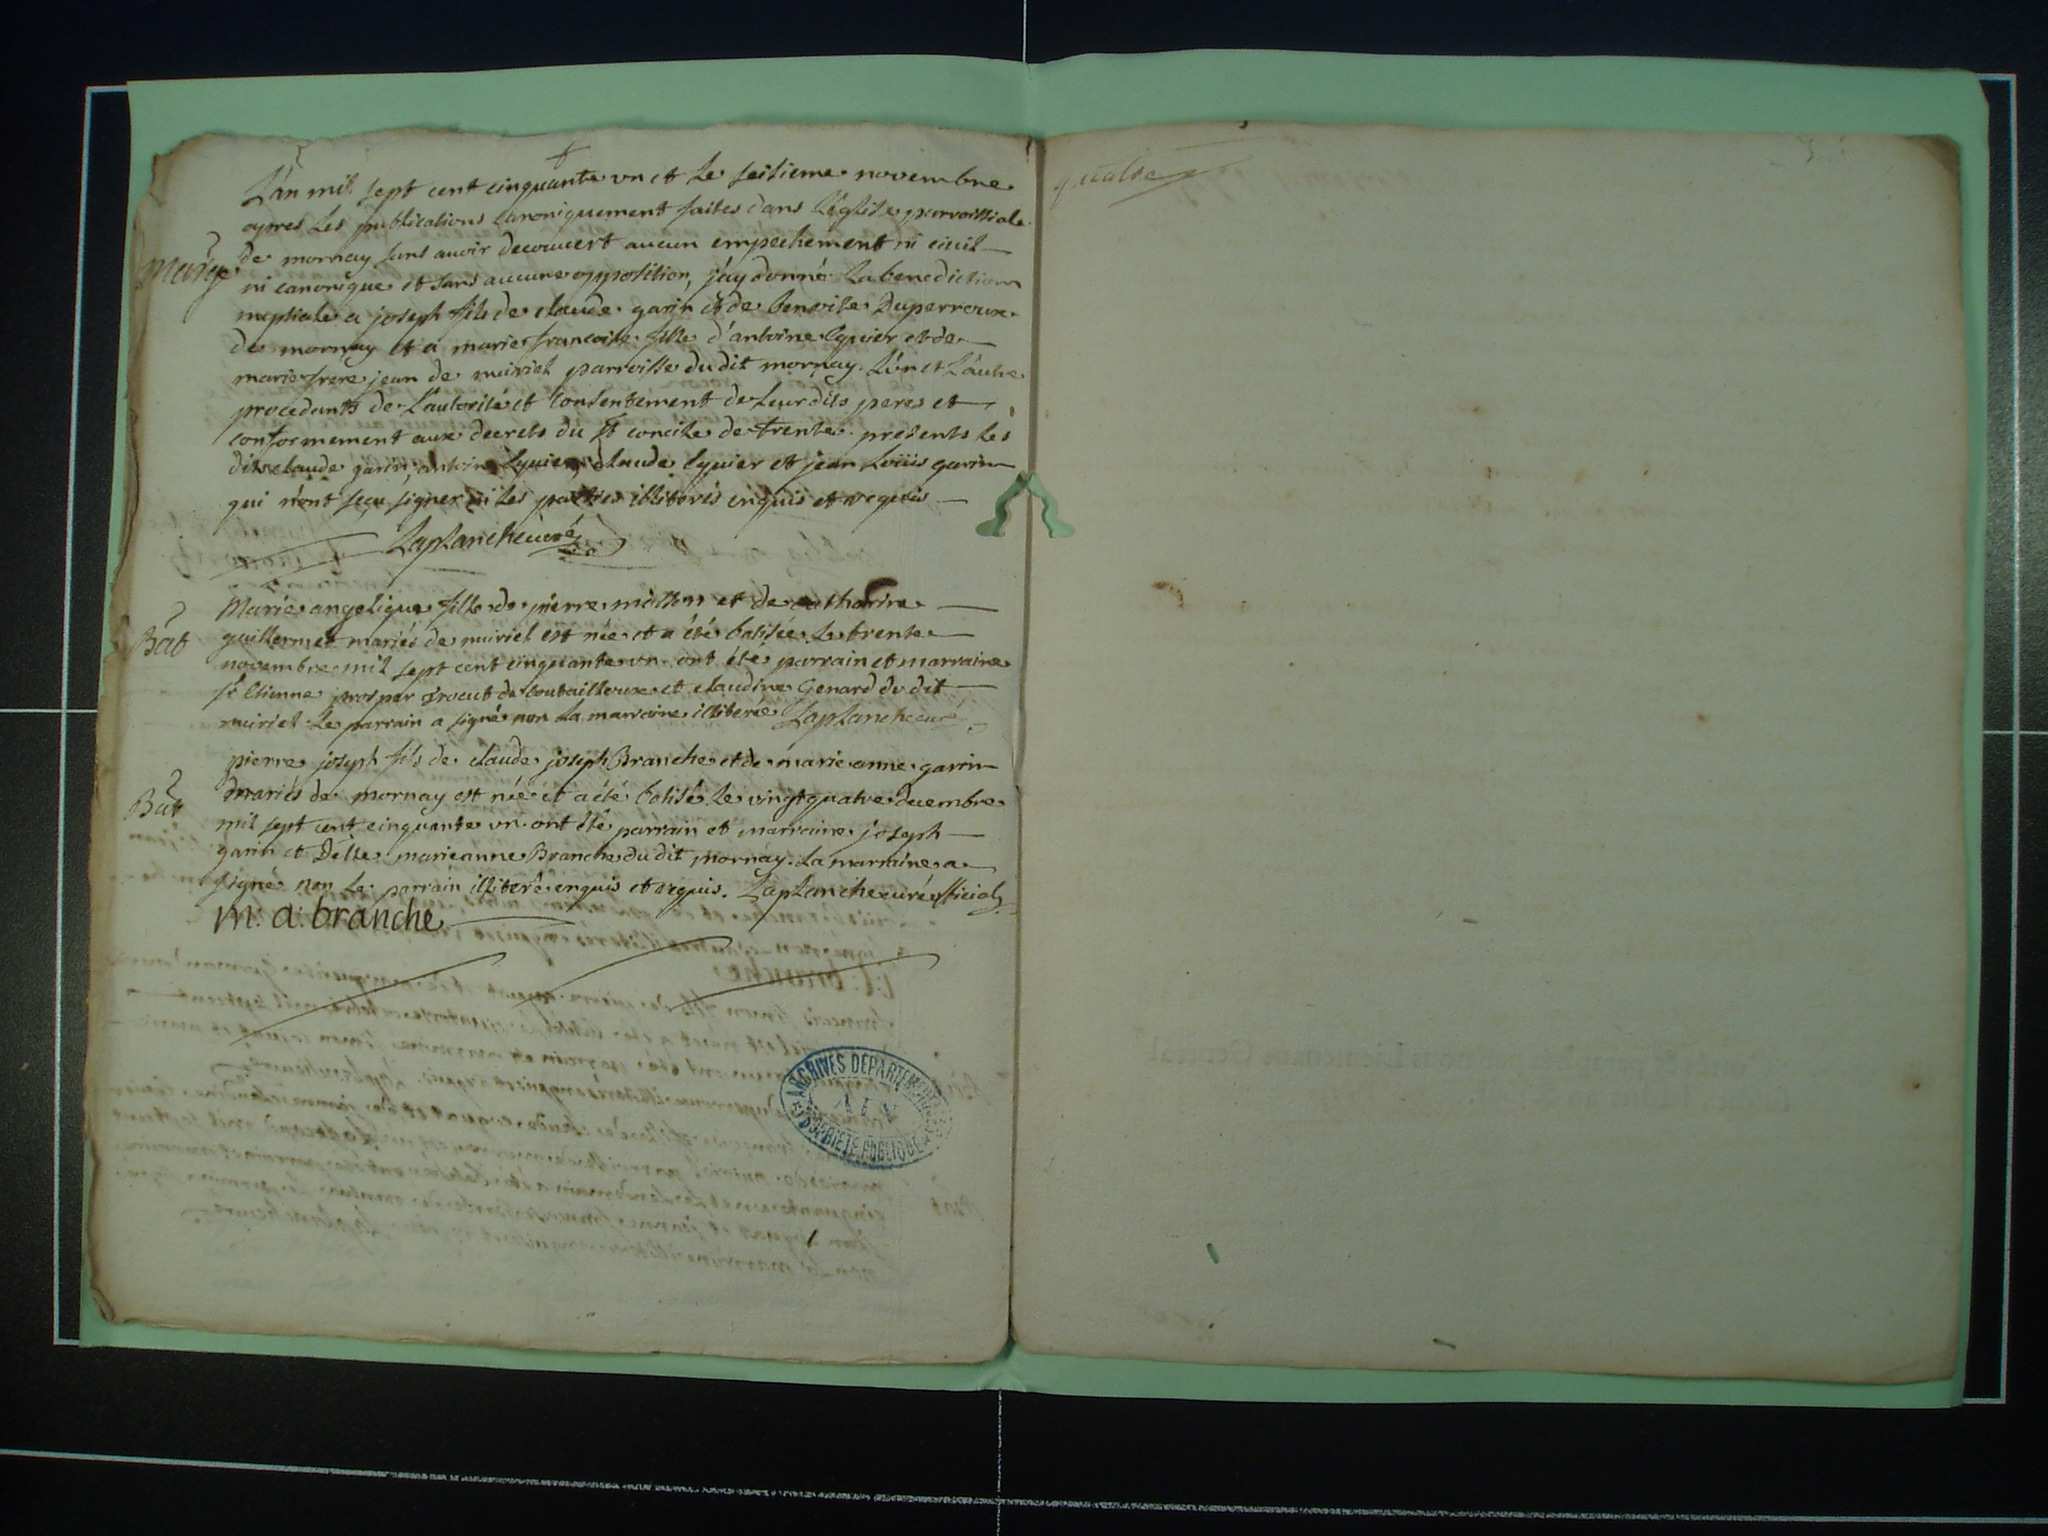 L'an mil sept cent cinquante un et le seisieme novembre
apres les publications canoniquement faites dans l'église parroissiale
de mornay sans avoir decouvert aucun empechement ni civil
mariage
ni canonique et sans aucune opposition, j'ay donné la benediction
nuptiale a joseph fils de claude garin et de benoite Duperroux
de mornay et a marie françoise fille d'antoine eyvier et de
marie frere jean de muriel parroisse du dit mornay. L'un et L'autre
procedants de L'autorité et consentement de Leur dits peres et
conformement aux decrets du st concile de trente. presents les
dits claude garin, antoine eyvier, claude eyvier et jean Loüis garin
qui n'ont sçu signer ni les parties illiterés enquis et requis
Laplanche curé
Marie angelique fille de pierre milleon et de catharine
Bat
guillermet mariés de muriel est née et a été batisée le trente
novembre mil sept cent cinquante un. ont été parrain et marraine
sr Etienne prosper de et claudine Genard du dit
muriel le parrain a signé non la marraine illiterée Laplanche curé
pierre joseph fils de claude joseph Branche et de marie anne garin
Bat
mariés de mornay est né et a été batisé le vingt quatre decembre
mil sept cent cinquante un. ont été parrain et marraine joseph
garin et Delle marieanne Branche du dit mornay. La marraine a
signé non le parrain illiteré enquis et requis. Laplanche curé official
m: a: branche
ARCHIVES DEPARTEMENTALES
AIN
PROPRIETE PUBLIQUE
quatre